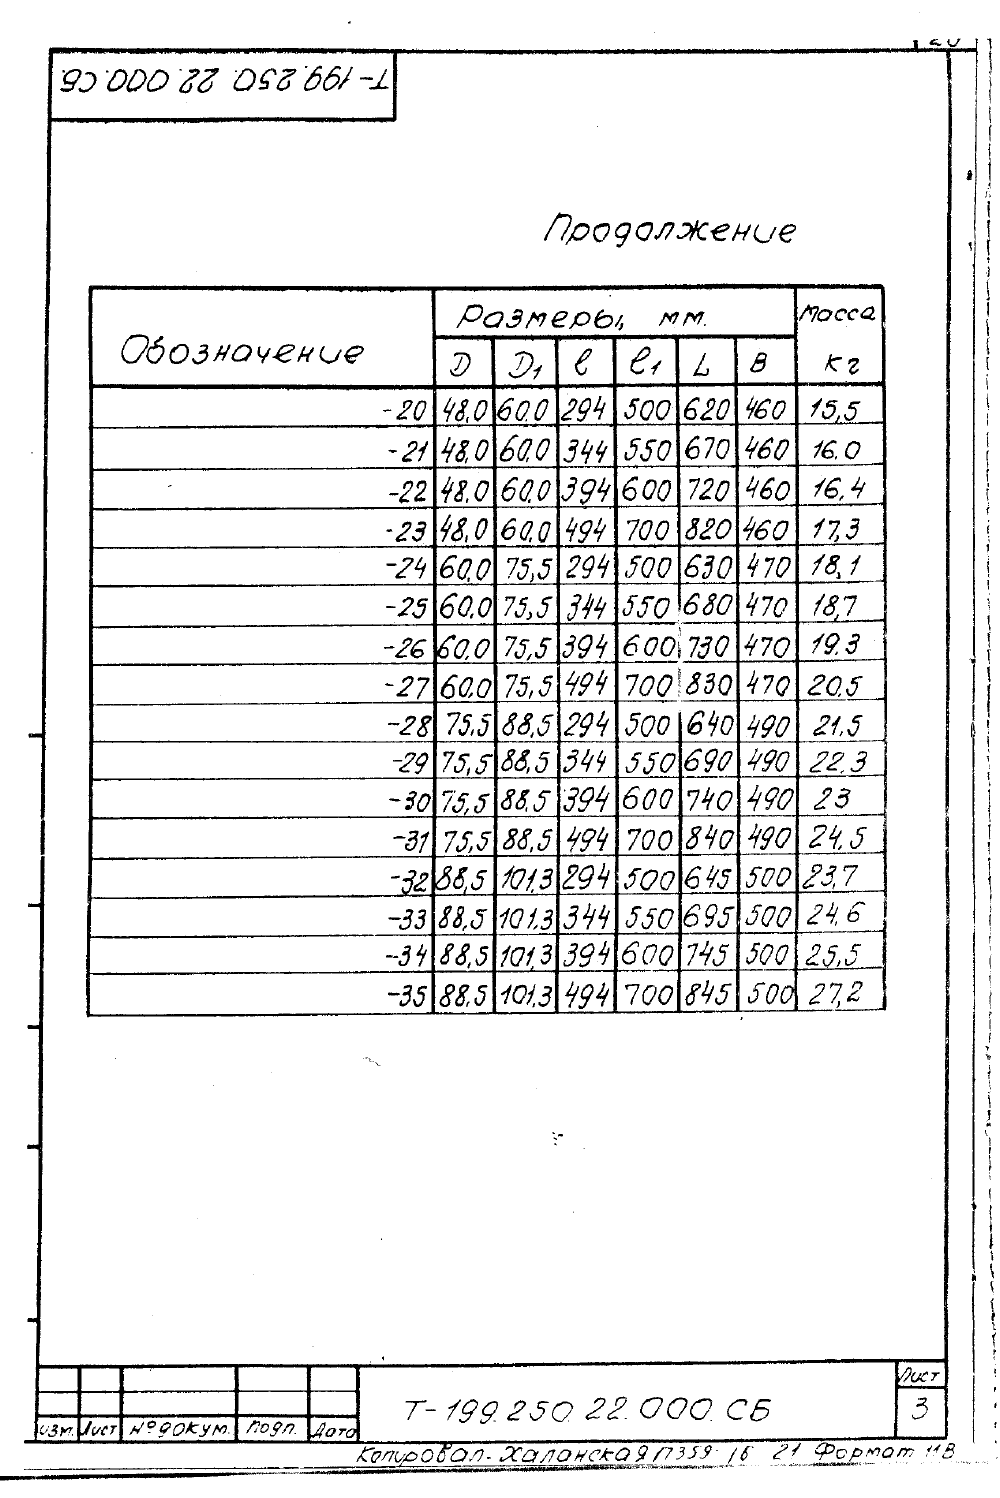 Т-199.250.22.000.СБ
Продолжение
Обозначение Размеры, мм. Масса кг
D D1 ℓ ℓ1 L B
-20 48,0 60,0 294 500 620 460 15,5
-21 48,0 60,0 344 550 670 460 16.0
-22 48,0 60,0 394 600 720 460 16,4
-23 48,0 60,0 494 700 820 460 17,3
-24 60,0 75,5 294 500 630 470 18,1
-25 60,0 75,5 344 550 680 470 18,7
-26 60,0 75,5 394 600 730 470 19.3
-27 60,0 75,5 494 700 830 470 20,5
-28 75,5 88,5 294 500 640 490 21,5
-29 75,5 88,5 344 550 690 490 22.3
-30 75,5 88,5 394 600 740 490 23
-31 75,5 88,5 494 700 840 490 24,5
-32 88,5 101,3 294 500 645 500 23,7
-33 88,5 101,3 344 550 695 500 24,6
-34 88,5 101,3 394 600 745 500 25,5
-35 88,5 101,3 494 700 845 500 27,2
Лист
Т-199.250.22.000.СБ 3
Изм. Лист № докум. Подп. Дата
Копировал- Халанская П359 16 21 Формат 11В